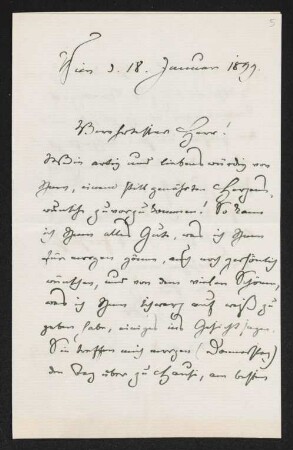 5
Wien d. 18. Januar 1899.
Verehrtester Herr!
Wie artig und liebenswürdig von
Ihnen, einem still genährten Herzens-
wunsche zuvorzukommen! So kann
ich Ihnen alles Gute, was ich Ihnen
für morgen gönne, auch noch persönlich
wünschen, und von dem vielen Schönen,
was ich Ihnen schwarz auf weiß zu
geben habe, einiges ins Gesicht sagen.
Sie treffen mich morgen (Donnerstag)
den Tag über zu Hause, am besten